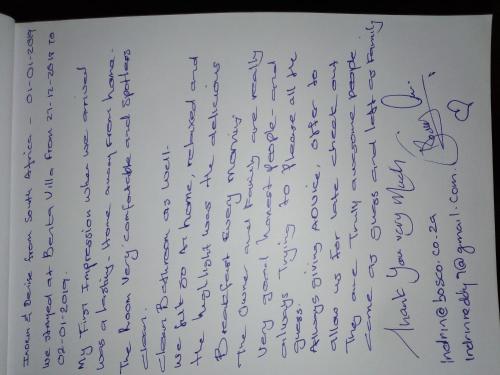 Indren & Denise from South Africa - 01-01-2019
We stayed at Benta Villa from 21-12-2018 to
02-01-2019.
My First Impression when we arrived
was a lasting - Home away from home.
The Room very comfortable and spotless
clean.
Clean Bathroom as well.
We felt so at home, relaxed and
the highlight was the delicious
Breakfast every morning.
The owner and Family are really
very good honest people and
always Trying to please all the
guess.
Always giving ADVICE, offer to
allow us for late check out
They are Truly awesome people
came as guess and left as Family
Thank You very Much
indrin@bosco.co.za
indrinreddy7@gmail.com